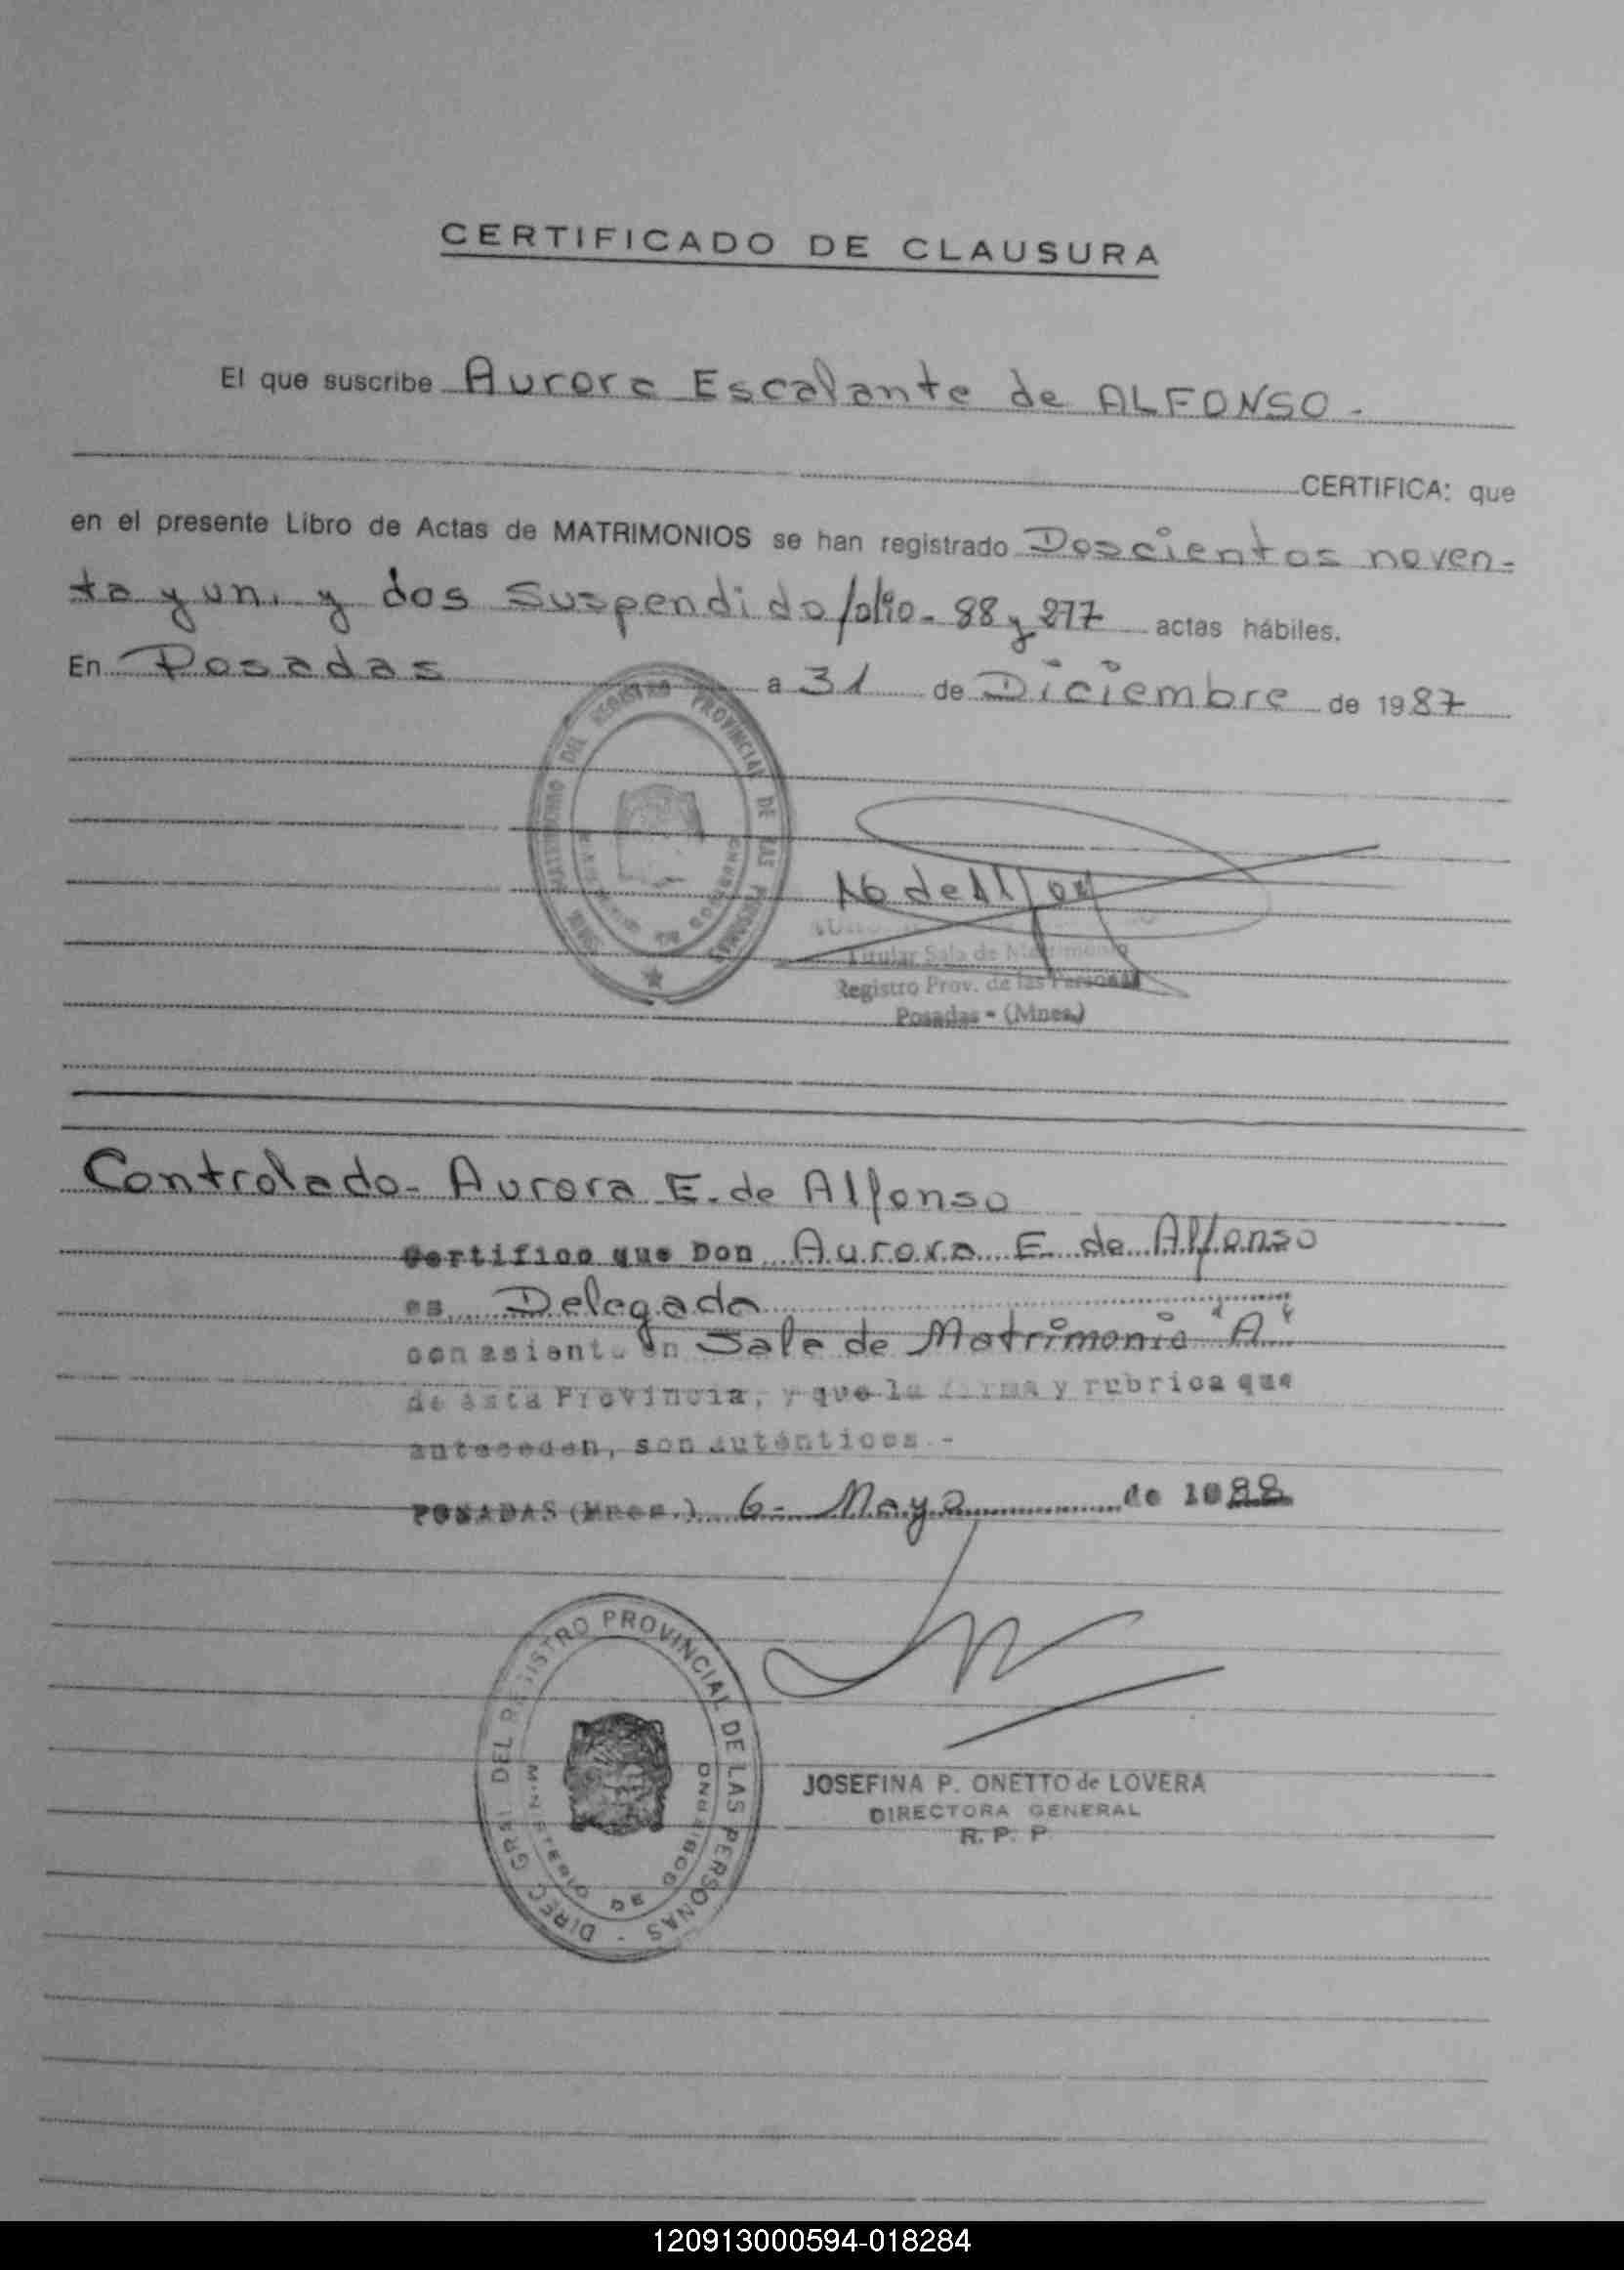 CERTIFICADO DE CLAUSURA
El que suscribe Aurora Escalante de ALFONSO -
CERTIFICA: que
en el presente Libro de Actas de MATRIMONIOS se han registrado Doscientos noven-
ta y un. y dos Suspendido folio - 88 y 277 actas hábiles.
En Posadas a 31 de Diciembre de 1987
DEL REGISTRO PROVINCIAL DE LAS PERSONAS
Titular Sala de Matrimonio
Registro Prov. de las Personas
Posadas - (Mnes.)
Controlado - Aurora E. de Alfonso
Certifico que Don Aurora E. de Alfonso
es Delegada
con asiento en Sala de Matrimonio "A"
de ésta Provincia, y que la firma y rubrica que
anteceden, son auténticos.-
POSADAS (Mnes.) 6 - Mayo de 1988
DIREC. GRAL. DEL REGISTRO PROVINCIAL DE LAS PERSONAS -
MINISTERIO DE GOBIERNO
JOSEFINA P. ONETTO de LOVERA
DIRECTORA GENERAL
R. P. P.
120913000594-018284